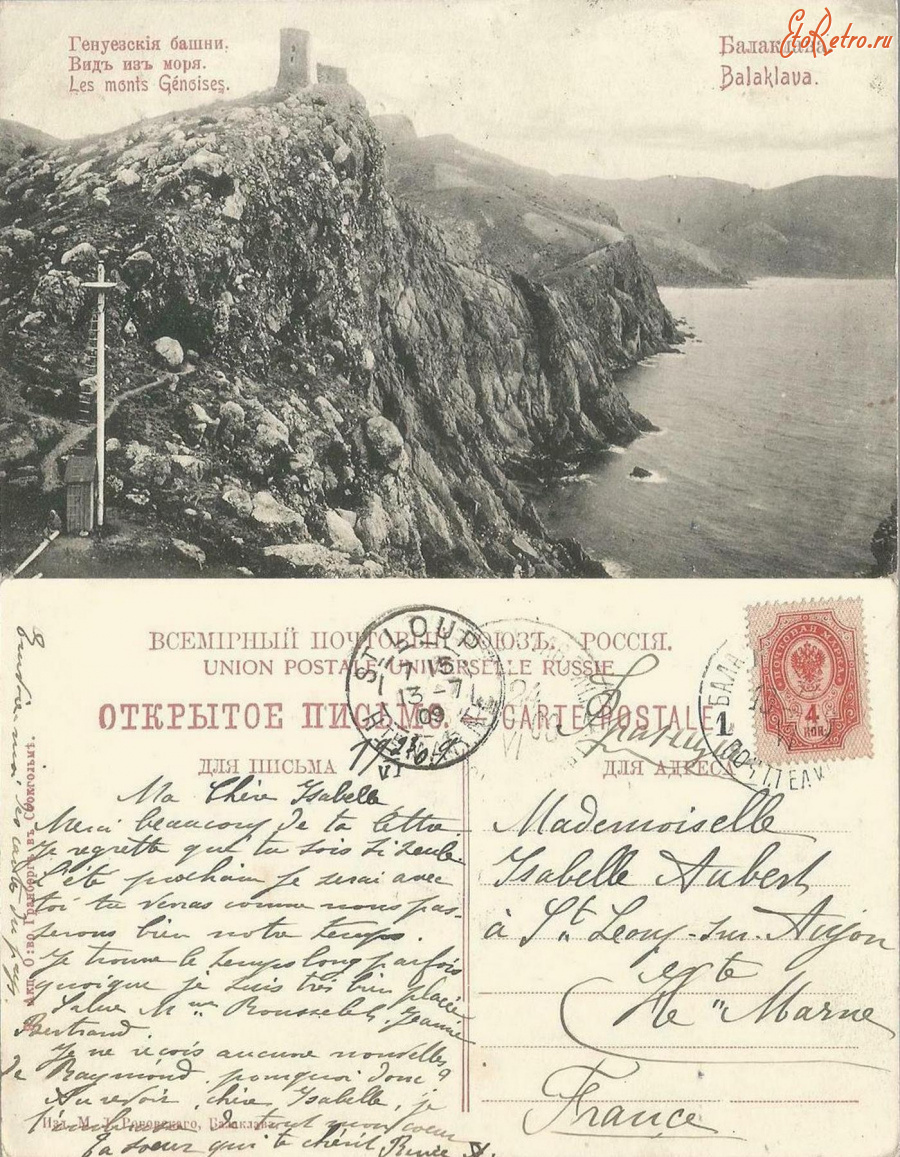 Генуезскія башни.
Видъ изъ моря.
Les monts Génoises.
Балаклава.
Balaklava.
EtoRetro.ru
ВСЕМІРНЫЙ ПОЧТОВЫЙ СОЮЗЪ. РОССІЯ.
UNION POSTALE UNIVERSELLE RUSSIE
ОТКРЫТОЕ ПИСЬМО. CARTE POSTALE
ДЛЯ ПИСЬМА
ДЛЯ АДРЕСА
ST LOUP
7 15
13 -7
09
HTE MARNE
БАЛА
1
ПОЧТ
ПОЧТОВАЯ МАРКА
4
КОП.
Франція
Ma Chère Isabelle
Merci beaucoup de ta lettre
Je regrette que tu sois si seule
L'été prochain je serai avec
toi tu verras comme nous pas-
serons bien notre temps.
Je trouve le temps long parfois
quoique je suis très bien placée
Salue Mme Rousselet, Jeanne
Bertrand.
Je ne reçois aucune nouvelles
de Raymond, pourquoi donc ?
Au revoir, chère Isabelle, je
t'embrasse de tout mon coeur
Ta soeur qui te chérit Renée A.
Mademoiselle
Isabelle Aubert
à St Loup-sur-Aujon
Hte Marne
France
Акц. О:во Гранбергъ въ Стокгольмѣ.
Изд. М. Роковскаго, Балаклава.